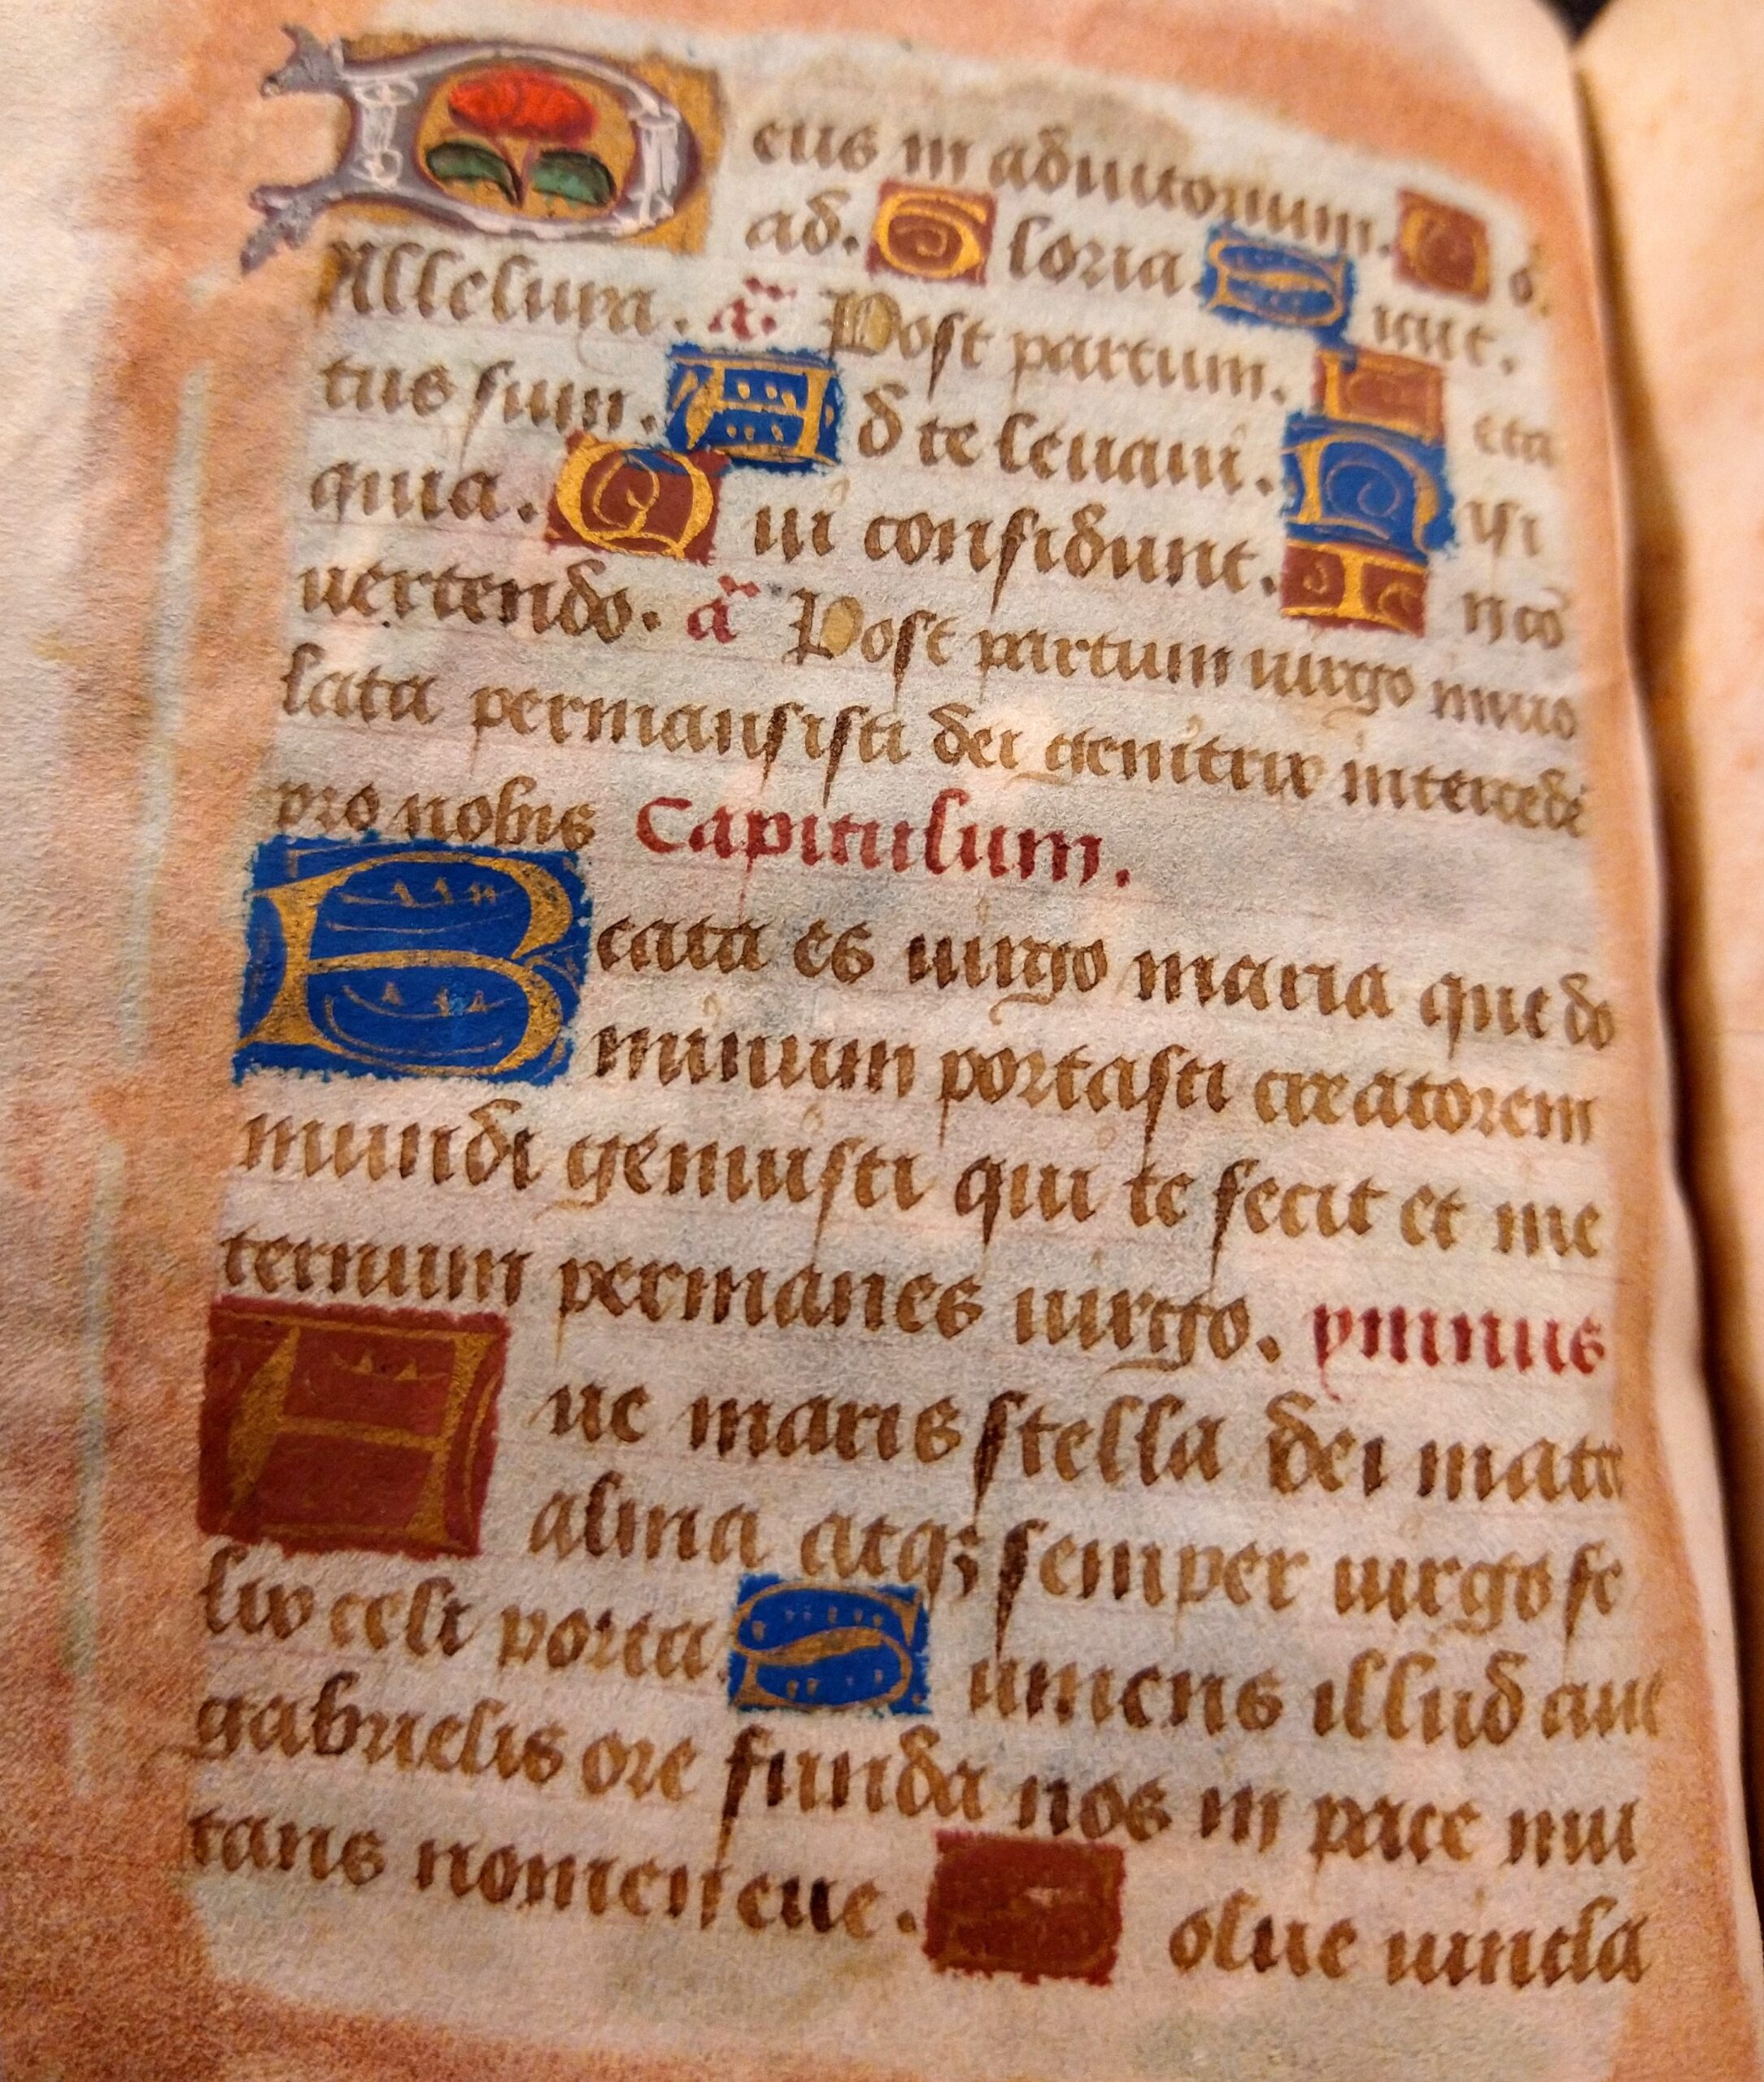 Deus in adiutorium. D d.
ad. Gloria Sicut.
Alleluya. añ. Post partum. Leta
tus sum. Ad te leuaui. Nisi
quia. Qui confidunt. In cō
uertendo. añ Post partum uirgo inuio
lata permansisti dei genitrix intercede
pro nobis Capitulum.
Beata es uirgo maria que do
minum portasti creatorem
mundi genuisti qui te fecit et in e
ternum permanes uirgo. ymnus
Aue maris stella dei mater
alma atq; semper uirgo fe
lix celi porta. Sumens illud aue
gabrielis ore funda nos in pace mu
tans nomen eue. Solue uincla